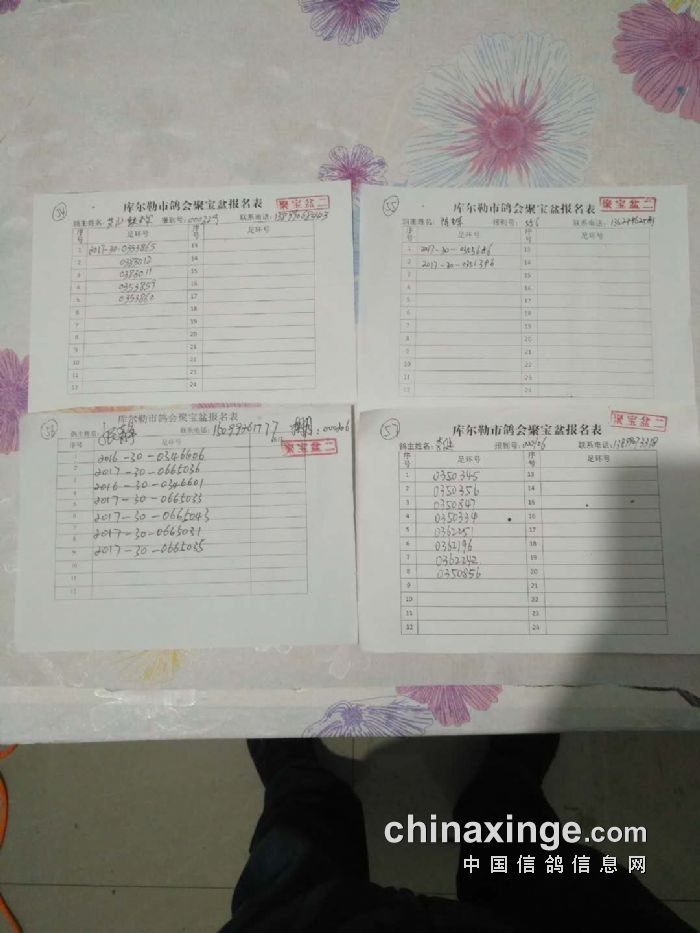 54
库尔勒市鸽会聚宝盆报名表
聚宝盆二
鸽主姓名:
报到号:
联系电话:
序号 足环号 序号 足环号
1 2017-30-0353865 13
2 0383012 14
3 0383011 15
4 0353857 16
5 0353860 17
6 18
7 19
8 20
9 21
10 22
11 23
12 24
55
库尔勒市鸽会聚宝盆报名表
聚宝盆二
鸽主姓名: 陈
报到号: 556
联系电话:
序号 足环号 序号 足环号
1 2017-30-0355646 13
2 2017-30-0351396 14
3 15
4 16
5 17
6 18
7 19
8 20
9 21
10 22
11 23
12 24
56
库尔勒市鸽会聚宝盆报名表
鸽主姓名:
联系电话: 15099761777
聚宝盆二
序号 足环号
1 2016-30-0346606
2 2017-30-0665036
3 2016-30-0346601
4 2017-30-0665033
5 2017-30-0665043
6 2017-30-0665031
7 2017-30-0665035
57
库尔勒市鸽会聚宝盆报名表
聚宝盆二
鸽主姓名:
报到号:
联系电话:
序号 足环号 序号 足环号
1 0350345 13
2 0350356 14
3 0350847 15
4 0350334 16
5 0362251 17
6 0362196 18
7 0362242 19
8 0350856 20
9 21
10 22
11 23
12 24
chinaxinge.com
中国信鸽信息网